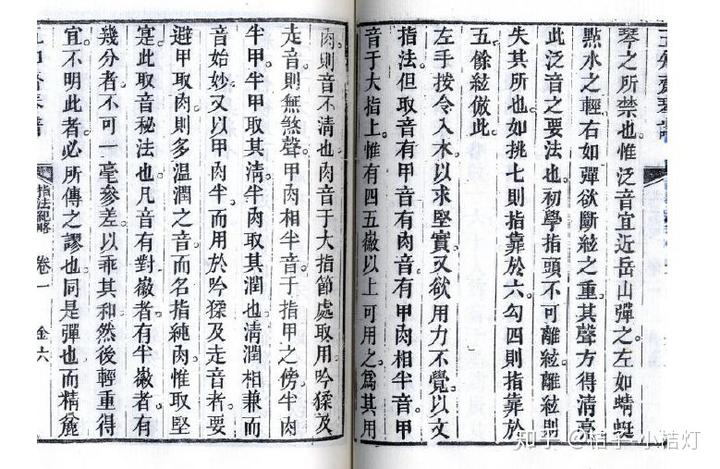 琴之所禁也惟泛音宜近岳山彈之左如蜻蜓
點水之輕右如彈欲斷絃之重其聲方得清亮
此泛音之要法也初學指頭不可離絃離絃則
失其所也如挑七則指靠於六勾四則指靠於
五餘絃倣此
左手按令入木以求堅實又欲用力不覺以文
指法但取音有甲音有肉音有甲肉相半音甲
音于大指上惟有四五徽以上可用之為其用
肉則音不清也肉音于大指節處取用吟猱及
走音則無煞聲甲肉相半音于指甲之傍半肉
半甲半甲取其清半肉取其潤也清潤相兼而
音始妙又以甲肉半而用於吟猱及走音者要
避甲取肉則多溫潤之音而名指純肉惟取堅
寔此取音秘法也凡音有對徽者有半徽者有
幾分者不可一毫參差以乖其和然後輕重得
宜不明此者必所傳之謬也同是彈也而精麄
指法紀略 卷一 金六
知乎 @桔子-小桔灯